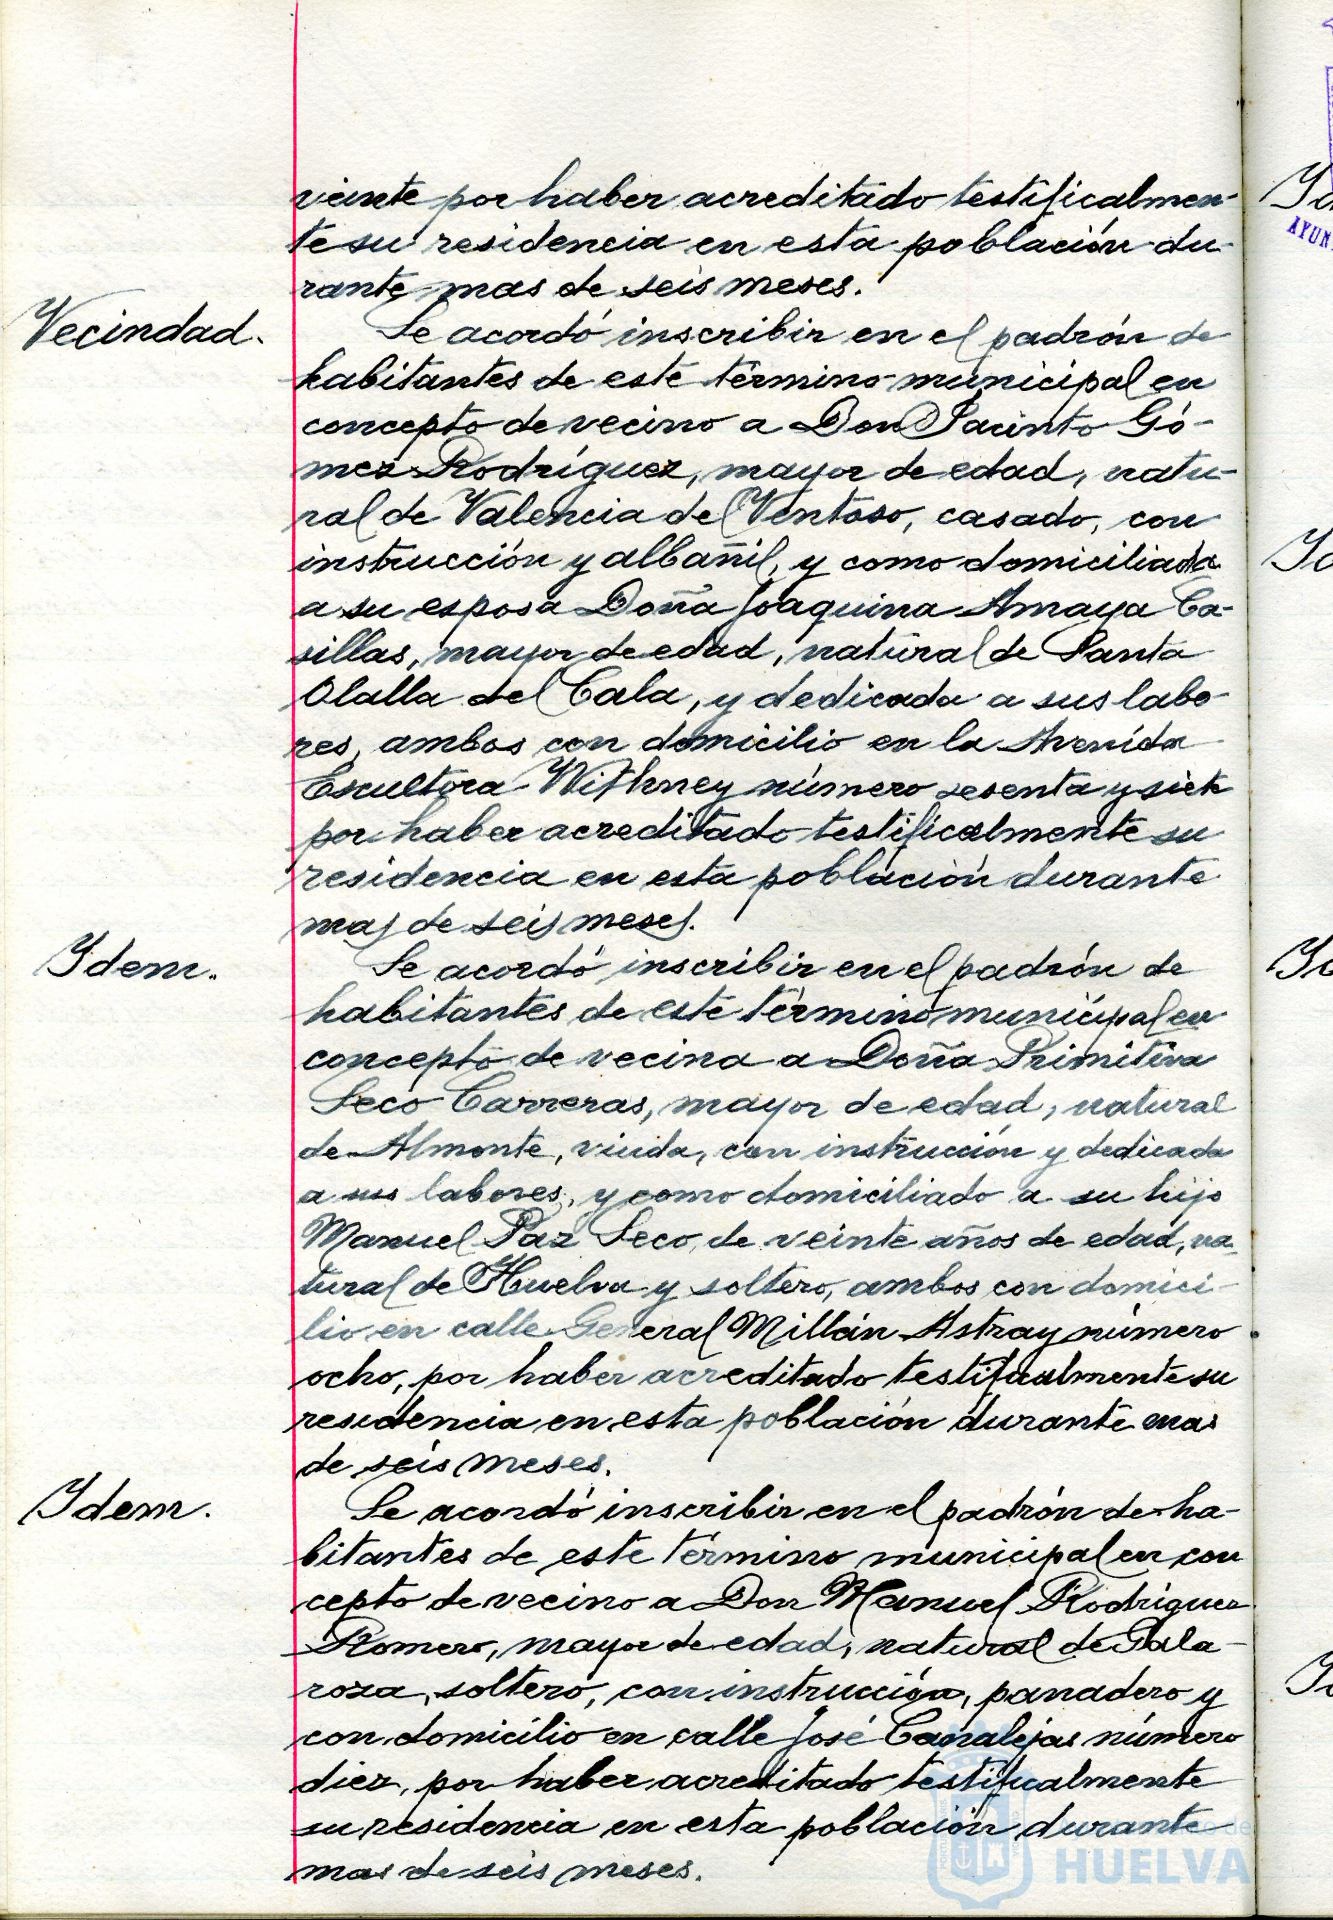 veinte por haber acreditado testificalmen-
te su residencia en esta población du-
rante mas de seis meses.
Vecindad.
Se acordó inscribir en el padrón de
habitantes de este término municipal en
concepto de vecino a Don Jacinto Gó-
mez Rodríguez, mayor de edad, natu-
ral de Valencia del Ventoso, casado, con
instrucción y albañil, y como domiciliada
a su esposa Doña Joaquina Amaya Ca-
sillas, mayor de edad, natural de Santa
Olalla del Cala, y dedicada a sus labo-
res, ambos con domicilio en la Avenida
Escultora Withney número sesenta y siete
por haber acreditado testificalmente su
residencia en esta población durante
mas de seis meses.
Idem.
Se acordó inscribir en el padrón de
habitantes de este término municipal en
concepto de vecina a Doña Primitiva
Seco Carreras, mayor de edad, natural
de Almonte, viuda, con instrucción y dedicada
a sus labores, y como domiciliado a su hijo
Manuel Paz Seco, de veinte años de edad, na-
tural de Huelva y soltero, ambos con domici-
lio en calle General Millán Astray número
ocho, por haber acreditado testificalmente su
residencia en esta población durante mas
de seis meses.
Idem.
Se acordó inscribir en el padrón de ha-
bitantes de este término municipal en con
cepto de vecino a Don Manuel Rodríguez
Romero, mayor de edad, natural de Gala-
roza, soltero, con instrucción, panadero y
con domicilio en calle José Canalejas número
diez, por haber acreditado testificalmente
su residencia en esta población durante
mas de seis meses.
HUELVA